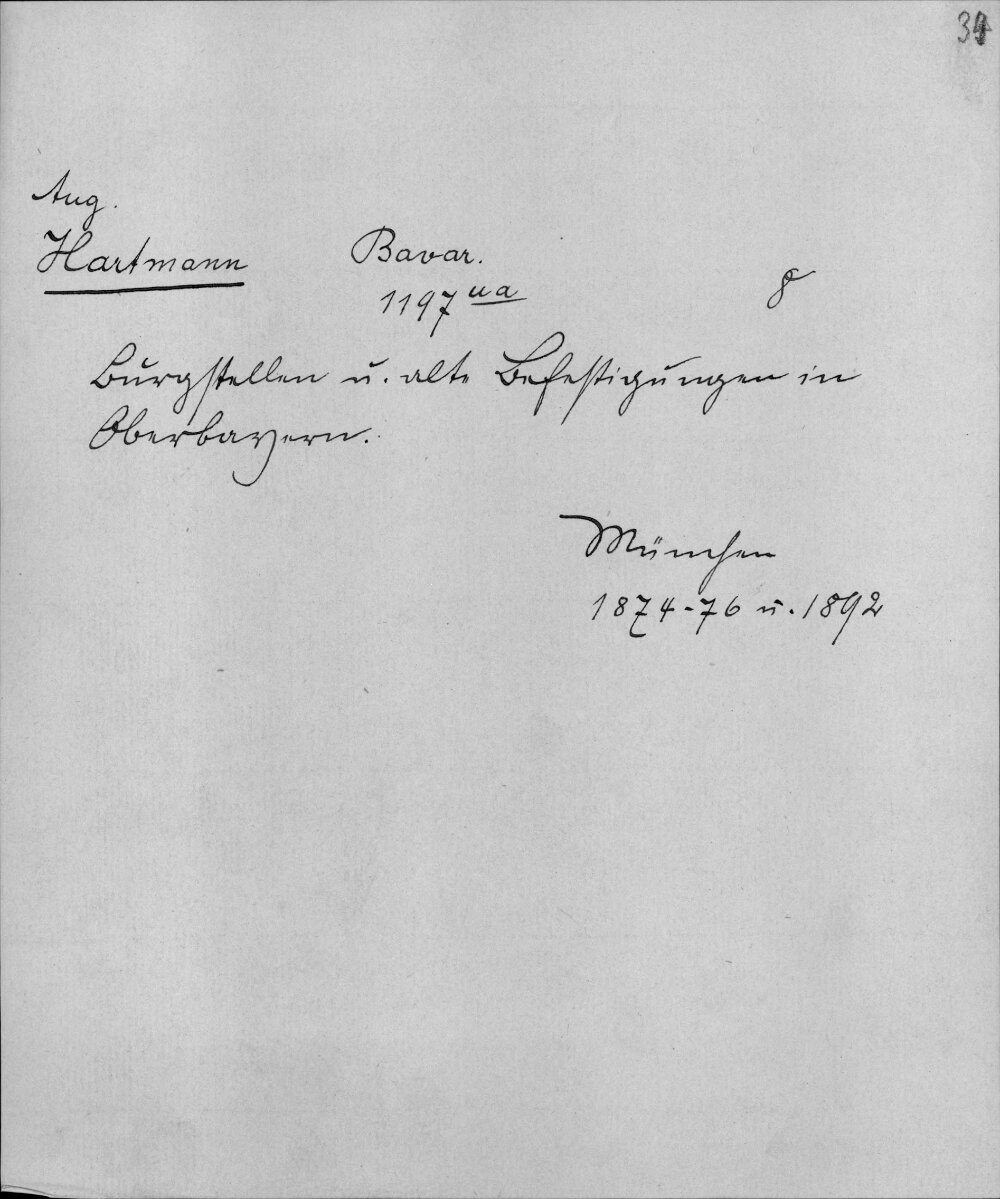 Aug.
Hartmann Bavar.
1197 ua 8
Burgstellen u. alte Befestigungen in
Oberbayern.
München
1874-76 u. 1892